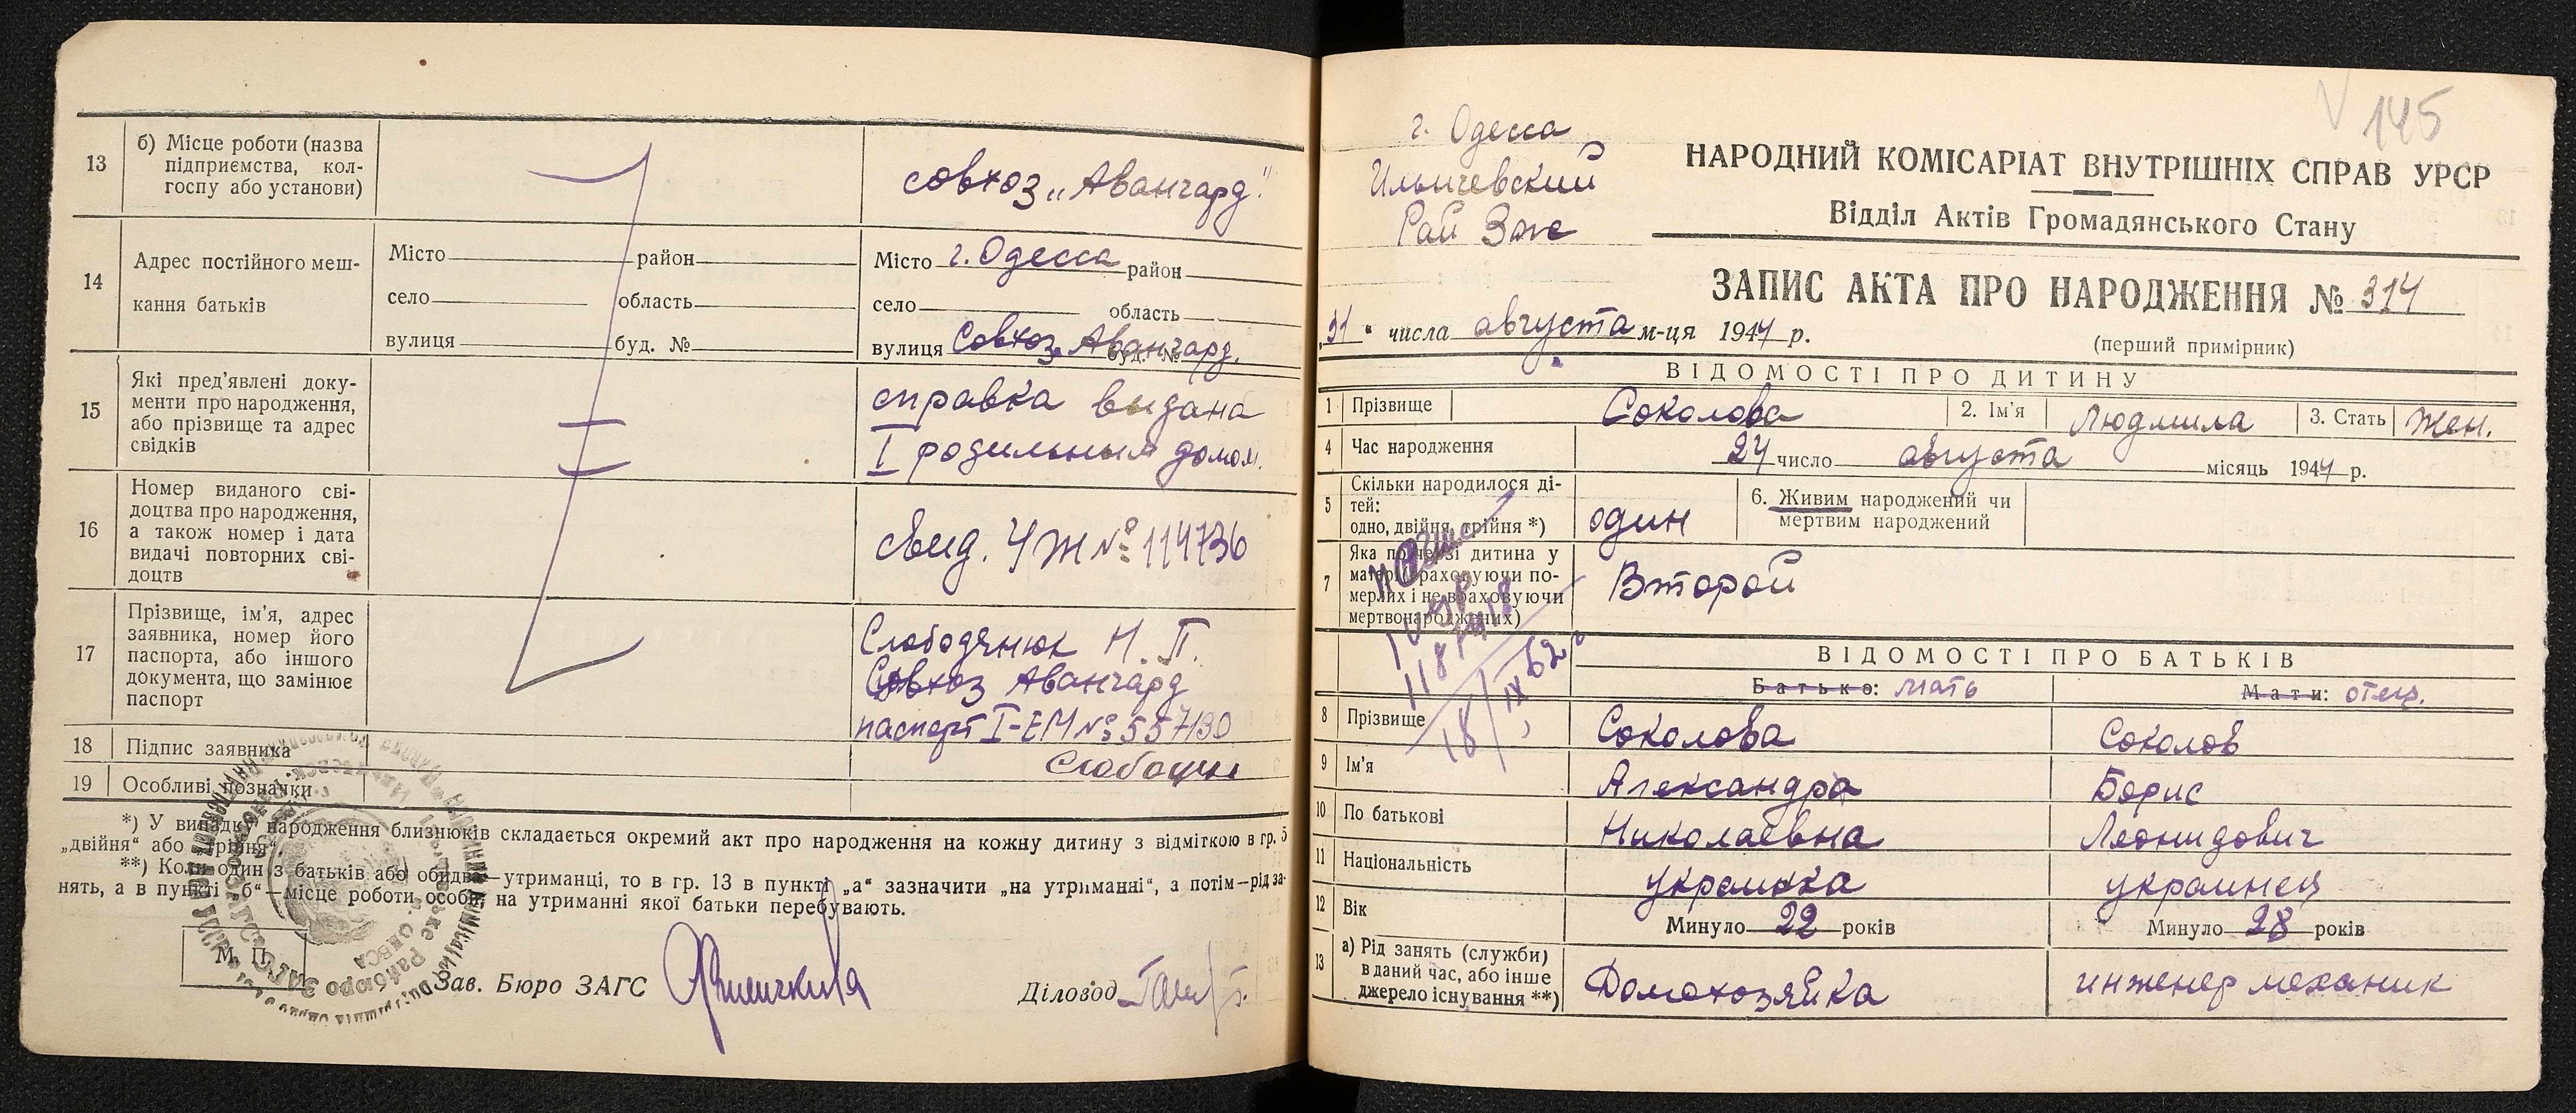 13
б) Місце роботи (назва
підприємства, кол-
госпу або установи)
совхоз „Авангард"
14
Адрес постійного меш-
кання батьків
Місто район
село область
вулиця буд. №
Місто г. Одесса район
село область
вулиця Совхоз Авангард. буд. №
15
Які пред'явлені доку-
менти про народження,
або прізвище та адрес
свідків
справка выдана
I родильным домом.
16
Номер виданого сві-
доцтва про народження,
а також номер і дата
видачі повторних сві-
доцтв
свид. УЖ № 114736
17
Прізвище, ім'я, адрес
заявника, номер його
паспорта, або іншого
документа, що замінює
паспорт
Слободянюк Н. П.
Совхоз Авангард
паспорт I-ЕМ № 557130
18 Підпис заявника
19 Особливі позначки
*) У випадку народження близнюків складається окремий акт про народження на кожну дитину з відміткою в гр. 5
„двійня" або „трійня".
**) Коли один з батьків або обидва—утриманці, то в гр. 13 в пункті „а" зазначити „на утриманні", а потім—рід за-
нять, а в пункті „б"—місце роботи особи, на утриманні якої батьки перебувають.
М. П.
Зав. Бюро ЗАГС
Діловод
145
г. Одесса
Ильичевский
Рай Загс
НАРОДНИЙ КОМІСАРІАТ ВНУТРІШНІХ СПРАВ УРСР
Відділ Актів Громадянського Стану
ЗАПИС АКТА ПРО НАРОДЖЕННЯ № 314
„31" числа августа м-ця 1944 р.
(перший примірник)
ВІДОМОСТІ ПРО ДИТИНУ
1 Прізвище Соколова 2. Ім'я Людмила 3. Стать Жен.
4 Час народження 24 число августа місяць 1944 р.
5
Скільки народилося ді-
тей:
одно, двійня, трійня *)
один
6. Живим народжений чи
мертвим народжений
7
Яка по черзі дитина у
матері (враховуючи по-
мерлих і не враховуючи
мертвонароджених)
Второй
18/IX 62 г
ВІДОМОСТІ ПРО БАТЬКІВ
Батько: мать Мати: отец.
8 Прізвище Соколова Соколов
9 Ім'я Александра Борис
10 По батькові Николаевна Леонидович
11 Національність украинка украинец
12 Вік Минуло 22 років Минуло 28 років
13
а) Рід занять (служби)
в даний час, або інше
джерело існування **)
Домохозяйка инженер механик